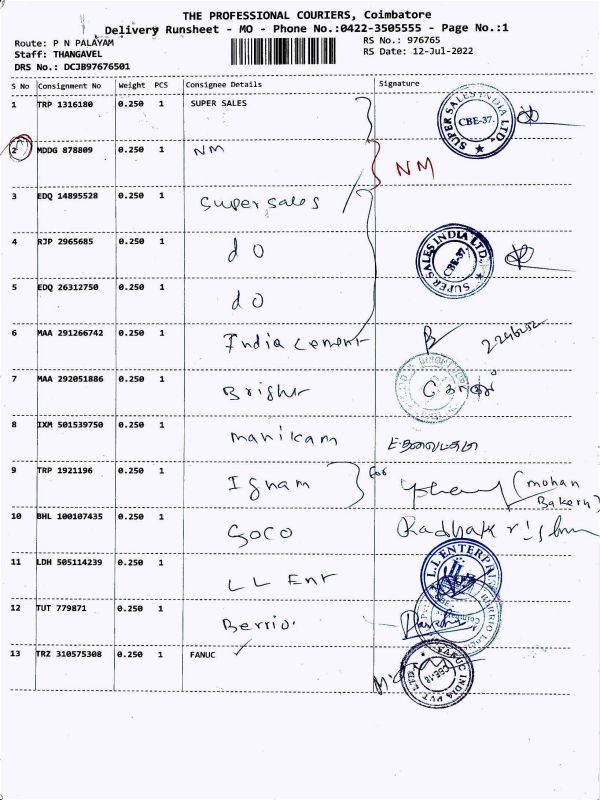 THE PROFESSIONAL COURIERS, Coimbatore
Delivery Runsheet - MO - Phone No.:0422-3505555 - Page No.:1
Route: P N PALAYAM
RS No.: 976765
Staff: THANGAVEL
RS Date: 12-Jul-2022
DRS No.: DCJB97676501
S No Consignment No Weight PCS Consignee Details Signature
1 TRP 1316180 0.250 1 SUPER SALES
SUPER SALES INDIA LTD. CBE-37.
2 MDDG 878809 0.250 1 NM NM
3 EDQ 14895528 0.250 1 Super sales
4 RJP 2965685 0.250 1 d O
SUPER SALES INDIA LTD. CBE-37.
5 EDQ 26312750 0.250 1 d O
6 MAA 291266742 0.250 1 India cement
7 MAA 292051886 0.250 1
8 IXM 501539750 0.250 1 manikam
9 TRP 1921196 0.250 1 for (mohan
Bakery)
10 BHL 100107435 0.250 1 Radhakrishn
11 LDH 505114239 0.250 1 LL Ent
L.L ENTERPRI
12 TUT 779871 0.250 1
13 TRZ 310575308 0.250 1 FANUC
FANUC INDIA PVT. LTD.